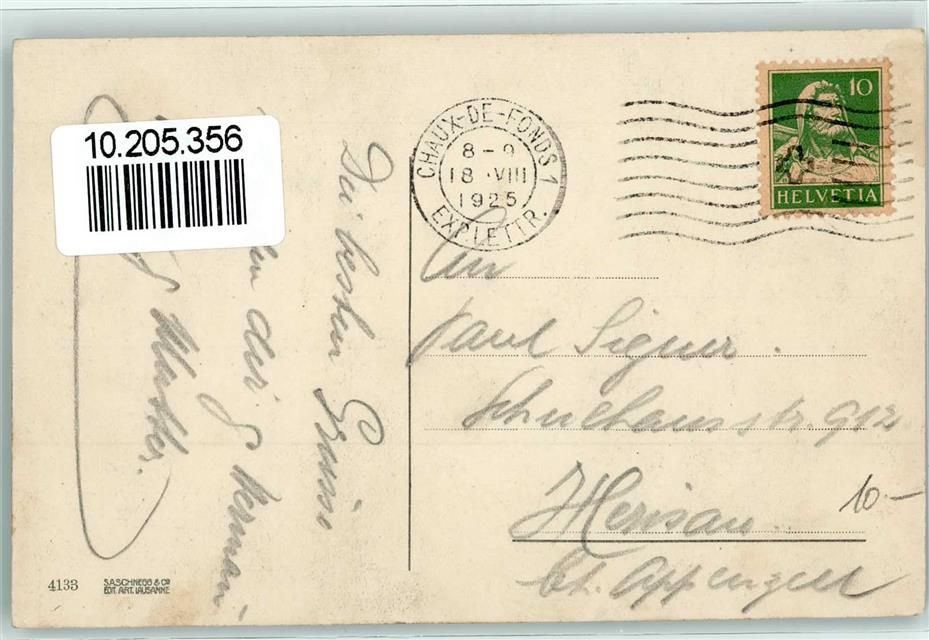 10.205.356
CHAUX-DE-FONDS 1
8-9
18.VIII
1925
EXP. LETTR.
10
HELVETIA
Die besten Grüsse
An
Paul Signer.
Schulhausstr. 912
Herisau.
Ct. Appenzell
10-
4133
S.A.SCHNEGG & Co
EDIT. ART. LAUSANNE